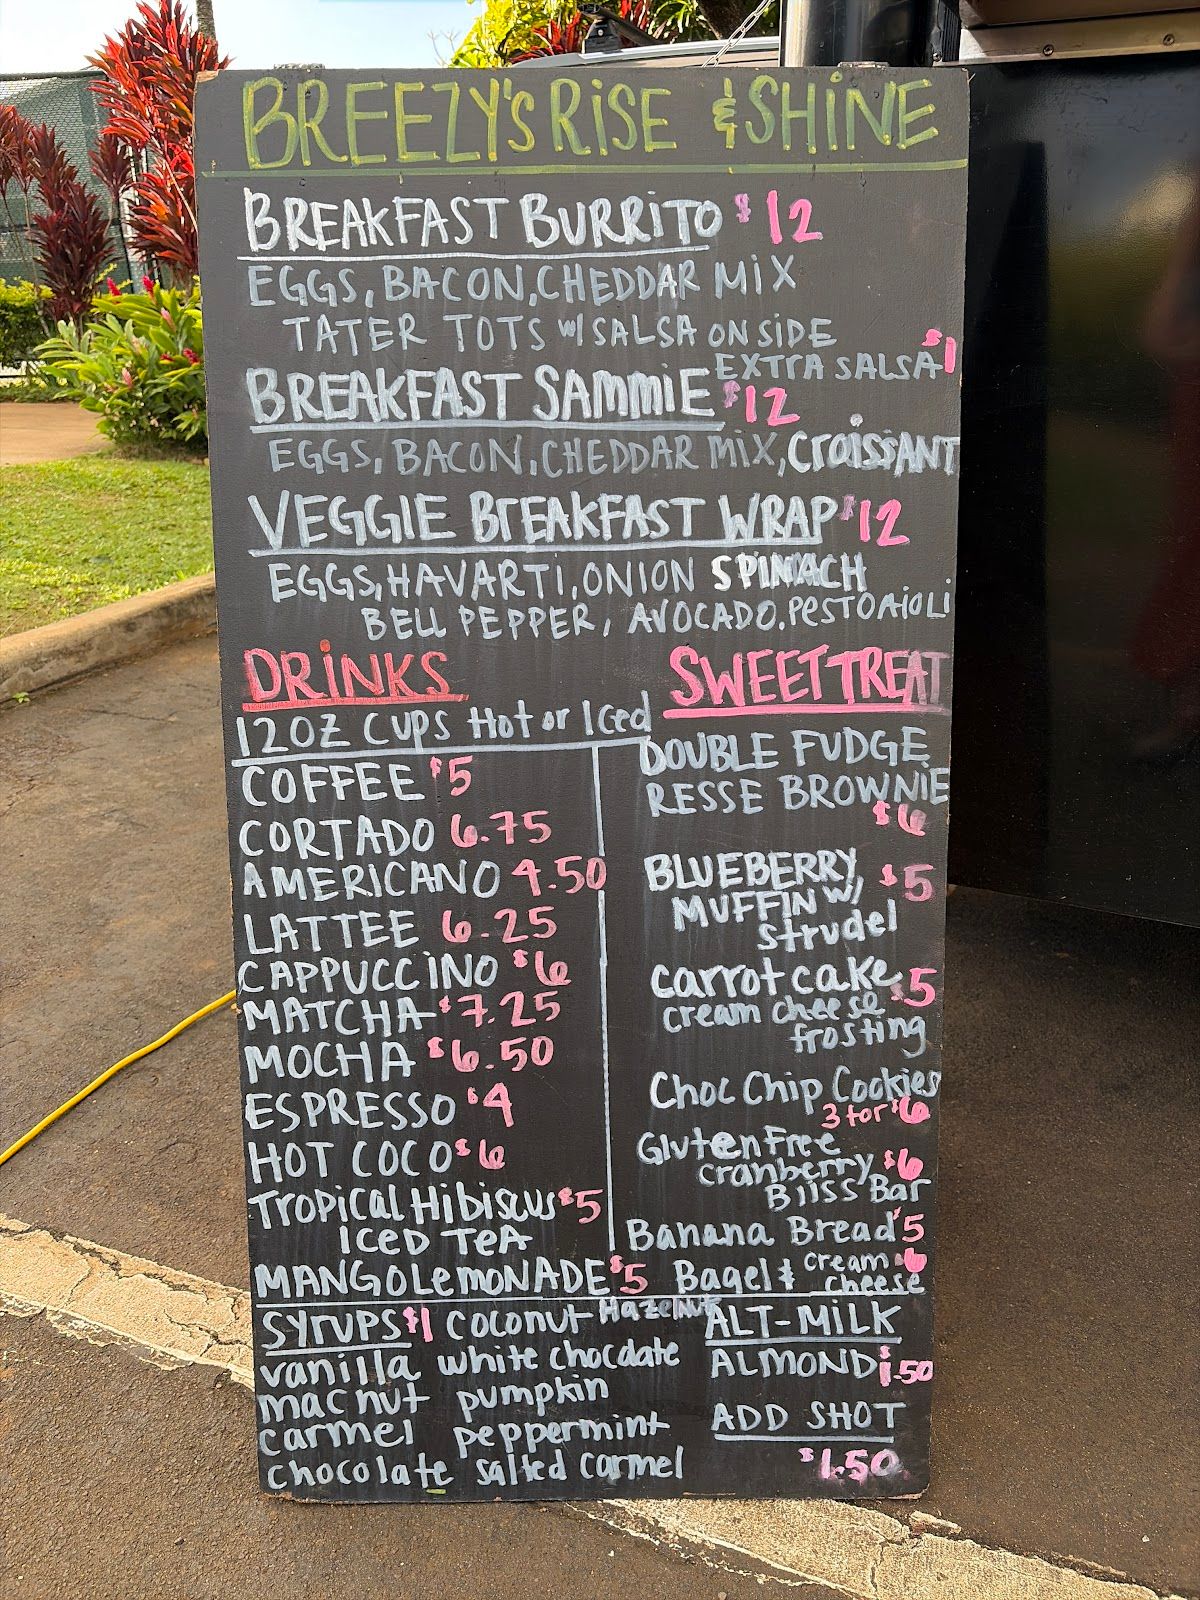 BREEZY'S RISE & SHINE
BREAKFAST BURRITO $12
EGGS, BACON, CHEDDAR MIX
TATER TOTS w/ SALSA ON SIDE
EXTRA SALSA $1
BREAKFAST SAMMIE $12
EGGS, BACON, CHEDDAR MIX, CROISSANT
VEGGIE BREAKFAST WRAP $12
EGGS, HAVARTI, ONION SPINACH
BELL PEPPER, AVOCADO, PESTO AIOLI
DRINKS
12OZ CUPS Hot or Iced
COFFEE $5
CORTADO 6.75
AMERICANO 4.50
LATTEE 6.25
CAPPUCCINO $6
MATCHA $7.25
MOCHA $6.50
ESPRESSO $4
HOT COCO $6
TROPICAL HIBISCUS $5
ICED TEA
MANGO LEMONADE $5
SWEET TREAT
DOUBLE FUDGE
RESSE BROWNIE
$6
BLUEBERRY $5
MUFFIN W/
strudel
carrot cake $5
cream cheese
frosting
Choc Chip Cookies
3 for $6
Gluten Free
cranberry $6
Bliss Bar
Banana Bread $5
Bagel & cream $6
cheese
SYRUPS $1 coconut Hazelnut
vanilla white chocolate
macnut pumpkin
carmel peppermint
chocolate salted carmel
ALT-MILK
ALMOND $1.50
ADD SHOT
$1.50